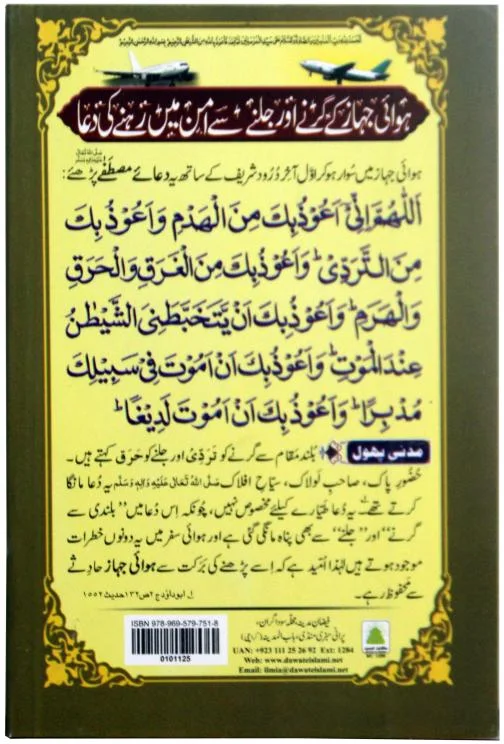 ہوائی جہاز کے گرنے اور جلنے سے امن میں رہنے کی دعا
ہوائی جہاز میں سوار ہو کر اوّل آخر دُرود شریف کے ساتھ یہ دعائے مصطفٰے پڑھئے:
اَللّٰهُمَّ اِنِّیْۤ اَعُوْذُ بِكَ مِنَ الْهَدْمِ وَ اَعُوْذُ بِكَ
مِنَ التَّرَدِّیْ ؕ وَ اَعُوْذُ بِكَ مِنَ الْغَرَقِ وَ الْحَرَقِ
وَ الْهَرَمِ ؕ وَ اَعُوْذُ بِكَ اَنْ یَّتَخَبَّطَنِیَ الشَّیْطٰنُ
عِنْدَ الْمَوْتِ ؕ وَ اَعُوْذُ بِكَ اَنْ اَمُوْتَ فِیْ سَبِیْلِكَ
مُدْبِرًا ؕ وَ اَعُوْذُ بِكَ اَنْ اَمُوْتَ لَدِیْغًا ؕ
مدنی پھول بُلند مقام سے گرنے کو تَرَدِّیْ اور جلنے کو حَرَق کہتے ہیں۔
حضورِ پاک، صاحبِ لَولاک، سیّاحِ افلاک صَلَّی اللہُ تَعَالٰی عَلَیْہِ وَاٰلِہٖ وَسَلَّم یہ دعا مانگا
کرتے تھے۔ یہ دُعا طیّارے کیلئے مخصوص نہیں، چونکہ اِس دُعا میں ’’بلندی سے
گرنے‘‘ اور ’’جلنے‘‘ سے بھی پناہ مانگی گئی ہے اور ہوائی سفر میں یہ دونوں خطرات
موجود ہوتے ہیں لہٰذا اُمّید ہے کہ اِسے پڑھنے کی بَرَکت سے ہوائی جہاز حادِثے
سے محفوظ رہے۔
۱ ابوداؤد ج۲ ص۱۳۲ حدیث ۱۵۵۲
ISBN 978-969-579-751-8
0101125
فیضانِ مدینہ، محلّہ سوداگران،
پرانی سبزی منڈی، باب المدینہ (کراچی)
UAN: +923 111 25 26 92 Ext: 1284
Web: www.dawateislami.net
Email: ilmia@dawateislami.net